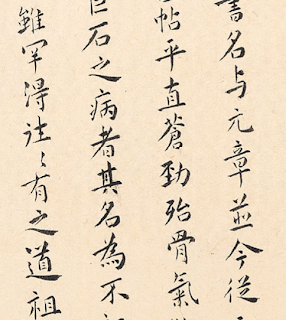 書名与元章並今從
帖平直蒼勁殆骨氣
石之病者其名為不
雖罕得註〻有之道祖